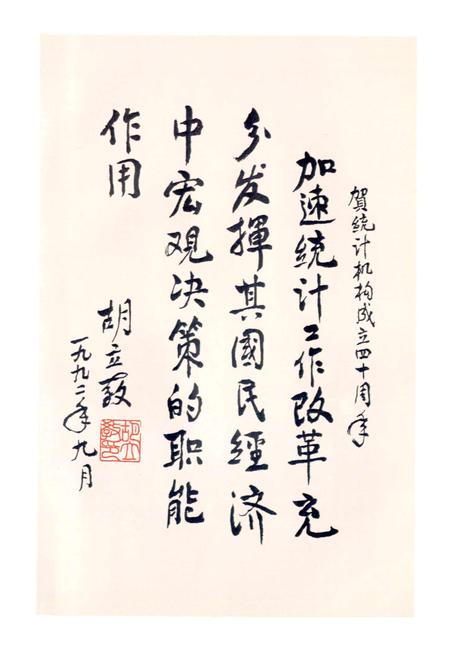 賀统计机构成立四十周年
加速统计工作改革充
分发揮其國民經济
中宏观决策的职能
作用
胡立敎
一九九二年九月